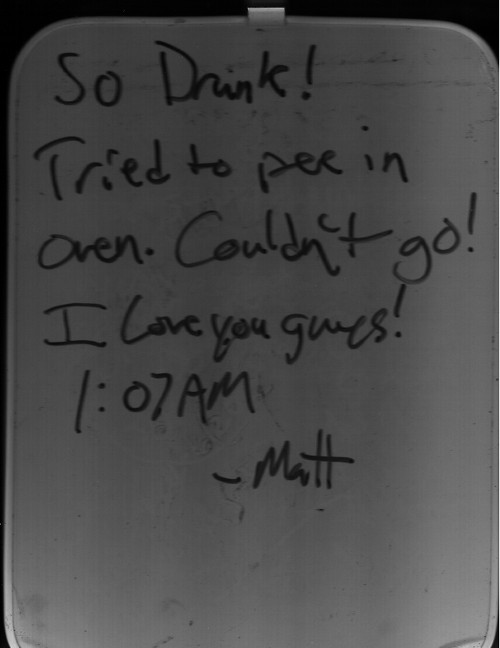 So Drunk!
Tried to pee in
oven. Couldn't go!
I Love you guys!
1:07AM
- Matt